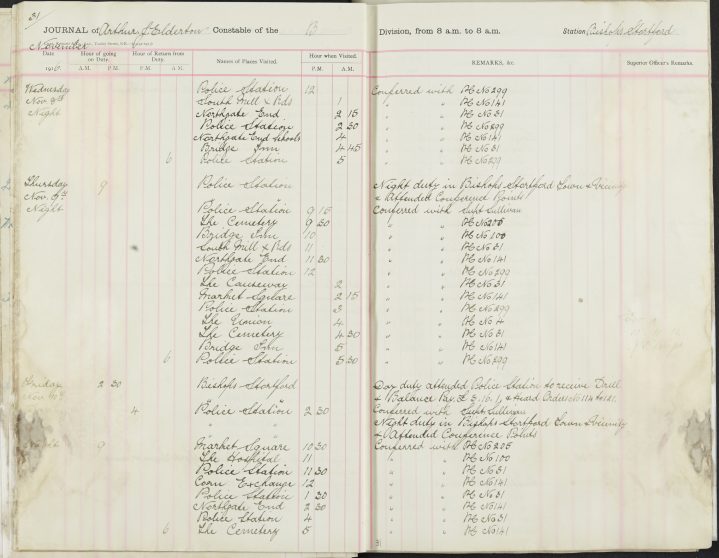 31
JOURNAL of Arthur S. Elderton Constable of the B Division, from 8 a.m. to 8 a.m. Station Bishops Stortford
November
Date Hour of going on Duty. Hour of Return from Duty. Names of Places Visited. Hour when Visited. REMARKS, &c. Superior Officer's Remarks.
1916. A.M. P.M. P.M. A.M. P.M. A.M.
Wednesday Police Station 12 Conferred with PC No 299
Nov 8th South Mill & Rds 1 " " PC No 141
Night Northgate End 2 15 " " PC No 31
Police Station 2 30 " " PC No 299
Northgate End Schools 4 " " PC No 141
Bridge Inn 4 45 " " PC No 31
6 Police Station 5 " " PC No 299
Thursday 9 Police Station Night duty in Bishops Stortford Town & Vicinity
Nov 9th & Attended Conference Points
Night Police Station 9 15 Conferred with Supt Sullivan
The Cemetery 9 30 " " PC No 205
Bridge Inn 10 " " PC No 100
South Mill & Rds 11 " " PC No 31
Northgate End 11 30 " " PC No 141
Police Station 12 " " PC No 299
The Causeway 2 " " PC No 31
Market Square 2 15 " " PC No 141
Police Station 3 " " PC No 299
The Union 4 " " PC No 4
The Cemetery 4 30 " " PC No 31
Bridge Inn 5 " " PC No 141
6 Police Station 5 30 " " PC No 299
Friday 2 30 Bishops Stortford Day duty attended Police Station to receive Drill
Nov 10th & Balance Pay £ 5. 16. 1, & heard Orders No 114 to 121.
4 Police Station 2 30 Conferred with Supt Sullivan
" " Night duty in Bishops Stortford Town & Vicinity
& Attended Conference Points
9 Market Square 10 30 Conferred with PC No 205
The Hospital 11 " " PC No 100
Police Station 11 30 " " PC No 31
Corn Exchange 12 " " PC No 141
Police Station 1 30 " " PC No 31
Northgate End 2 30 " " PC No 141
Police Station 4 " " PC No 31
6 The Cemetery 5 " " PC No 141
31